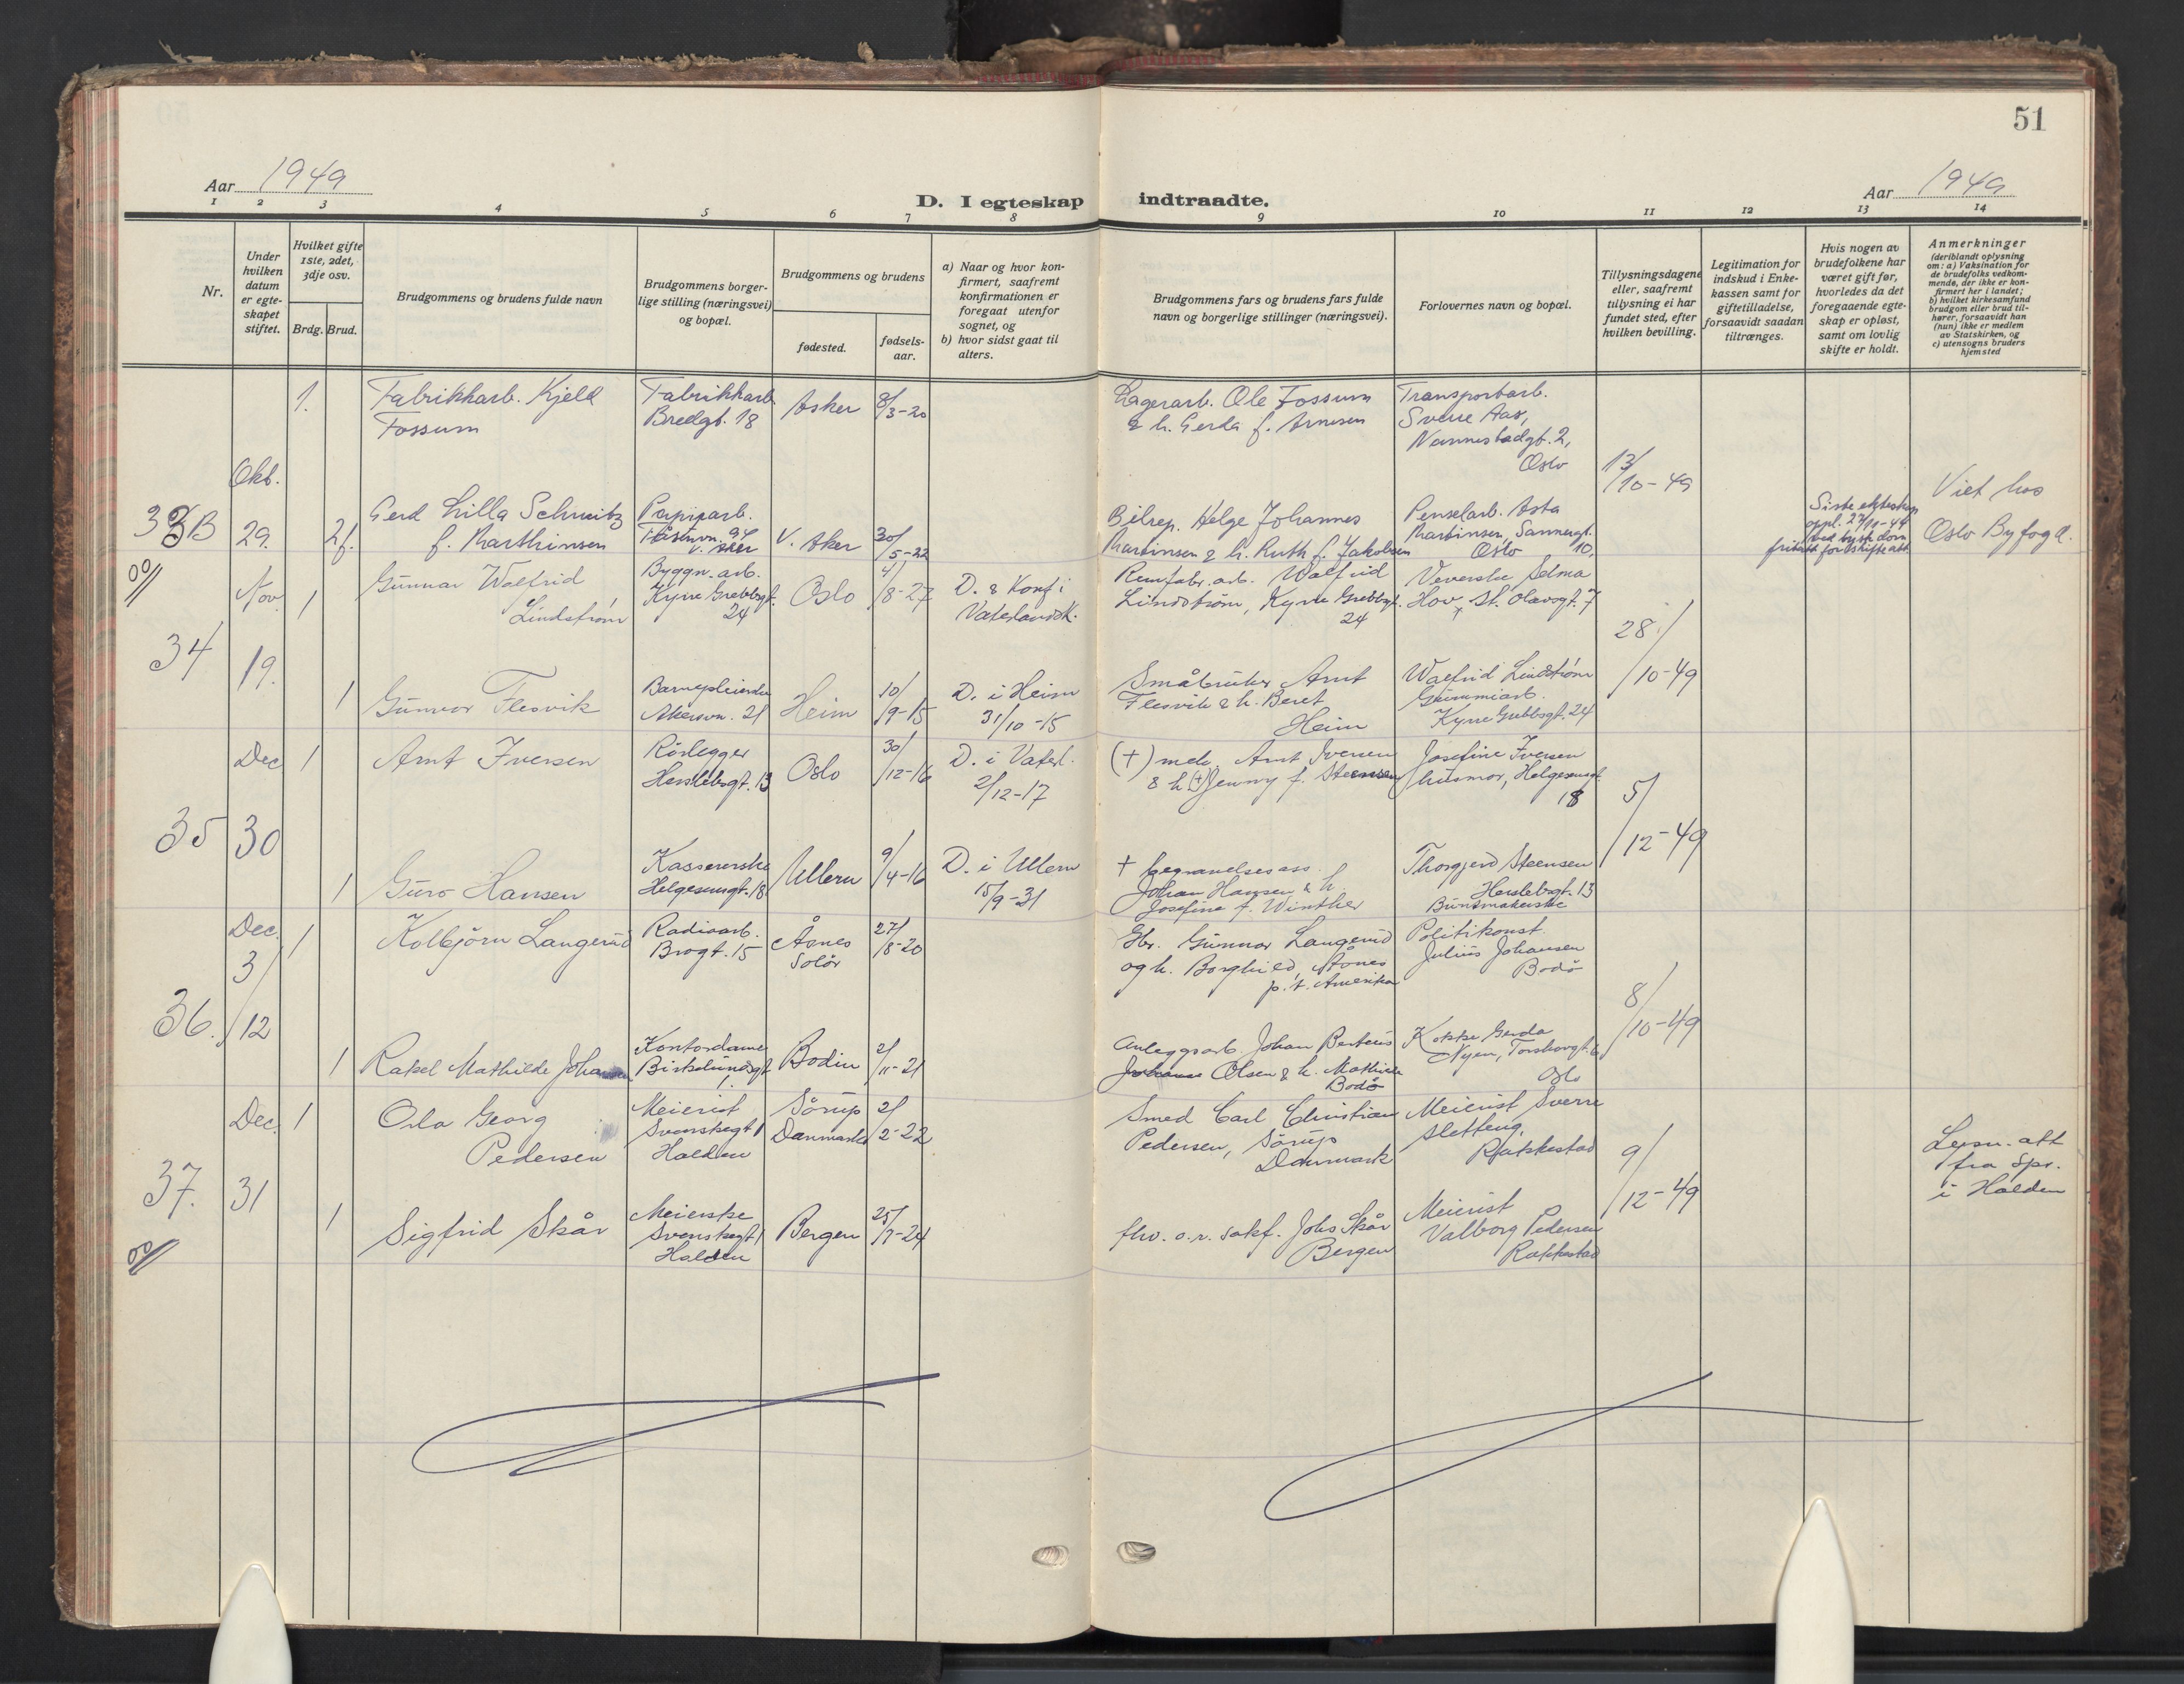 51
Aar 1949
D. I egteskap indtraadte.
Aar 1949
1 2 3 4 5 6 7 8 9 10 11 12 13 14
Nr.
Under hvilken datum er egteskapet stiftet.
Hvilket gifte 1ste, 2det, 3dje osv.
Brdg. Brud.
Brudgommens og brudens fulde navn
Brudgommens borgerlige stilling (næringsvei) og bopæl.
Brudgommens og brudens
fødested.
fødselsaar.
a) Naar og hvor konfirmert, saafremt konfirmationen er foregaat utenfor sognet, og
b) hvor sidst gaat til alters.
Brudgommens fars og brudens fars fulde navn og borgerlige stillinger (næringsvei).
Forlovernes navn og bopæl.
Tillysningsdagene eller, saafremt tillysning ei har fundet sted, efter hvilken bevilling.
Legitimation for indskud i Enkekassen samt for giftetilladelse, forsaavidt saadan tiltrænges.
Hvis nogen av brudefolkene har været gift før, hvorledes da det foregaaende egteskap er opløst, samt om lovlig skifte er holdt.
Anmerkninger (deriblandt oplysning om: a) Vaksination for de brudefolks vedkommende, der ikke er konfirmert her i landet; b) hvilket kirkesamfund brudgom eller brud tilhører, forsaavidt han (hun) ikke er medlem av Statskirken, og c) utensogns bruders hjemsted
33B
Okt.
29.
1.
Fabrikkarb. Kjeld
Fossum
Fabrikkarb.
Bredgt. 18
Asker
8/3-20
Lagerarb. Ole Fossum
& h. Gerda f. Arnesen
Transportarb.
Sverre Aas,
Nannestadgt. 2,
Oslo
13/10-49
2f.
Gerd Lilla Schmitz
f. Marthinsen
Papirarb.
V. Aker
V. Aker
30/5-22
Bilrep. Helge Johannes
Martinsen & h. Ruth f. Jakobsen
Penselarb. Asta
Martinsen, Sannergt.
Oslo 10.
Siste ekteskap
Viet hos
Oslo Byfogd.
34
Nov.
19.
1
Gunnar Walfrid
Lindstrøm
Byggn.arb.
Kyrre Grebbsgt.
24
Oslo
4/8-27
D. & Konf i
Vaterlandsk.
Remfabr.arb. Walfrid
Lindstrøm, Kyrre Grebbsgt.
24
Veverske Selma
Hov, St. Olavsgt. 7
28/10-49
1
Gunvor Flesvik
Barnepleierske
Akersvn. 21
Heim
10/9-15
D. i Heim
31/10-15
Småbruker Arnt
Flesvik & h. Beret
Heim
Walfrid Lindstrøm
Gummiarb.
Kyrre Grebbsgt. 24
35
Dec
30
1
Arnt Iversen
Rörlegger
Herslebsgt. 13
Oslo
30/12-16
D. i Vaterl.
2/12-17
(+) mek. Arnt Iversen
& h (+) Jenny f. Steensen
Josefine Iversen
husmor, Helgesensgt.
18
5/12-49
1
Guro Hansen
Kassererske
Helgesensgt. 18
Ullern
9/4-16
D. i Ullern
15/9-31
+ begravelsesass.
Johan Hansen & h.
Josefine f. Winther
Thorgjerd Steensen
Herslebsgt. 13
Buntmakerske
36.
Dec.
3/12
1
Kolbjörn Langerud
Radioarb.
Brogt. 15
Åsnes
Solör
27/8-20
Gbr. Gunnar Langerud
og h. Borghild, Åsnes
p.t. Amerika
Politikonst.
Julius Johansen
Bodö
8/10-49
1
Rakel Mathilde Johansen
Kontordame
Birkelundsgt
1.
Bodin
2/11-21
Anleggsarb. Johan Berteus
Olsen & h. Mathilde
Bodö
Kokke Gerda
Nyen, Torshovgt. 6
Oslo
37.
Dec.
31
1
Ola Georg
Pedersen
Meierist
Svenskegt 1
Halden
Sörup
Danmark
2/2-22
Smed Carl Christian
Pedersen, Sörup
Danmark
Meierist Sverre
Sletteng,
Rakkestad
9/12-49
Lysn. att
fra Spr.
i Halden
1
Sigfrid Skår
Meierske
Svenskegt 1
Halden
Bergen
25/7-24
fhv. o.r. sakf. Johs Skår
Bergen
Meierist
Valborg Pedersen
Rakkestad